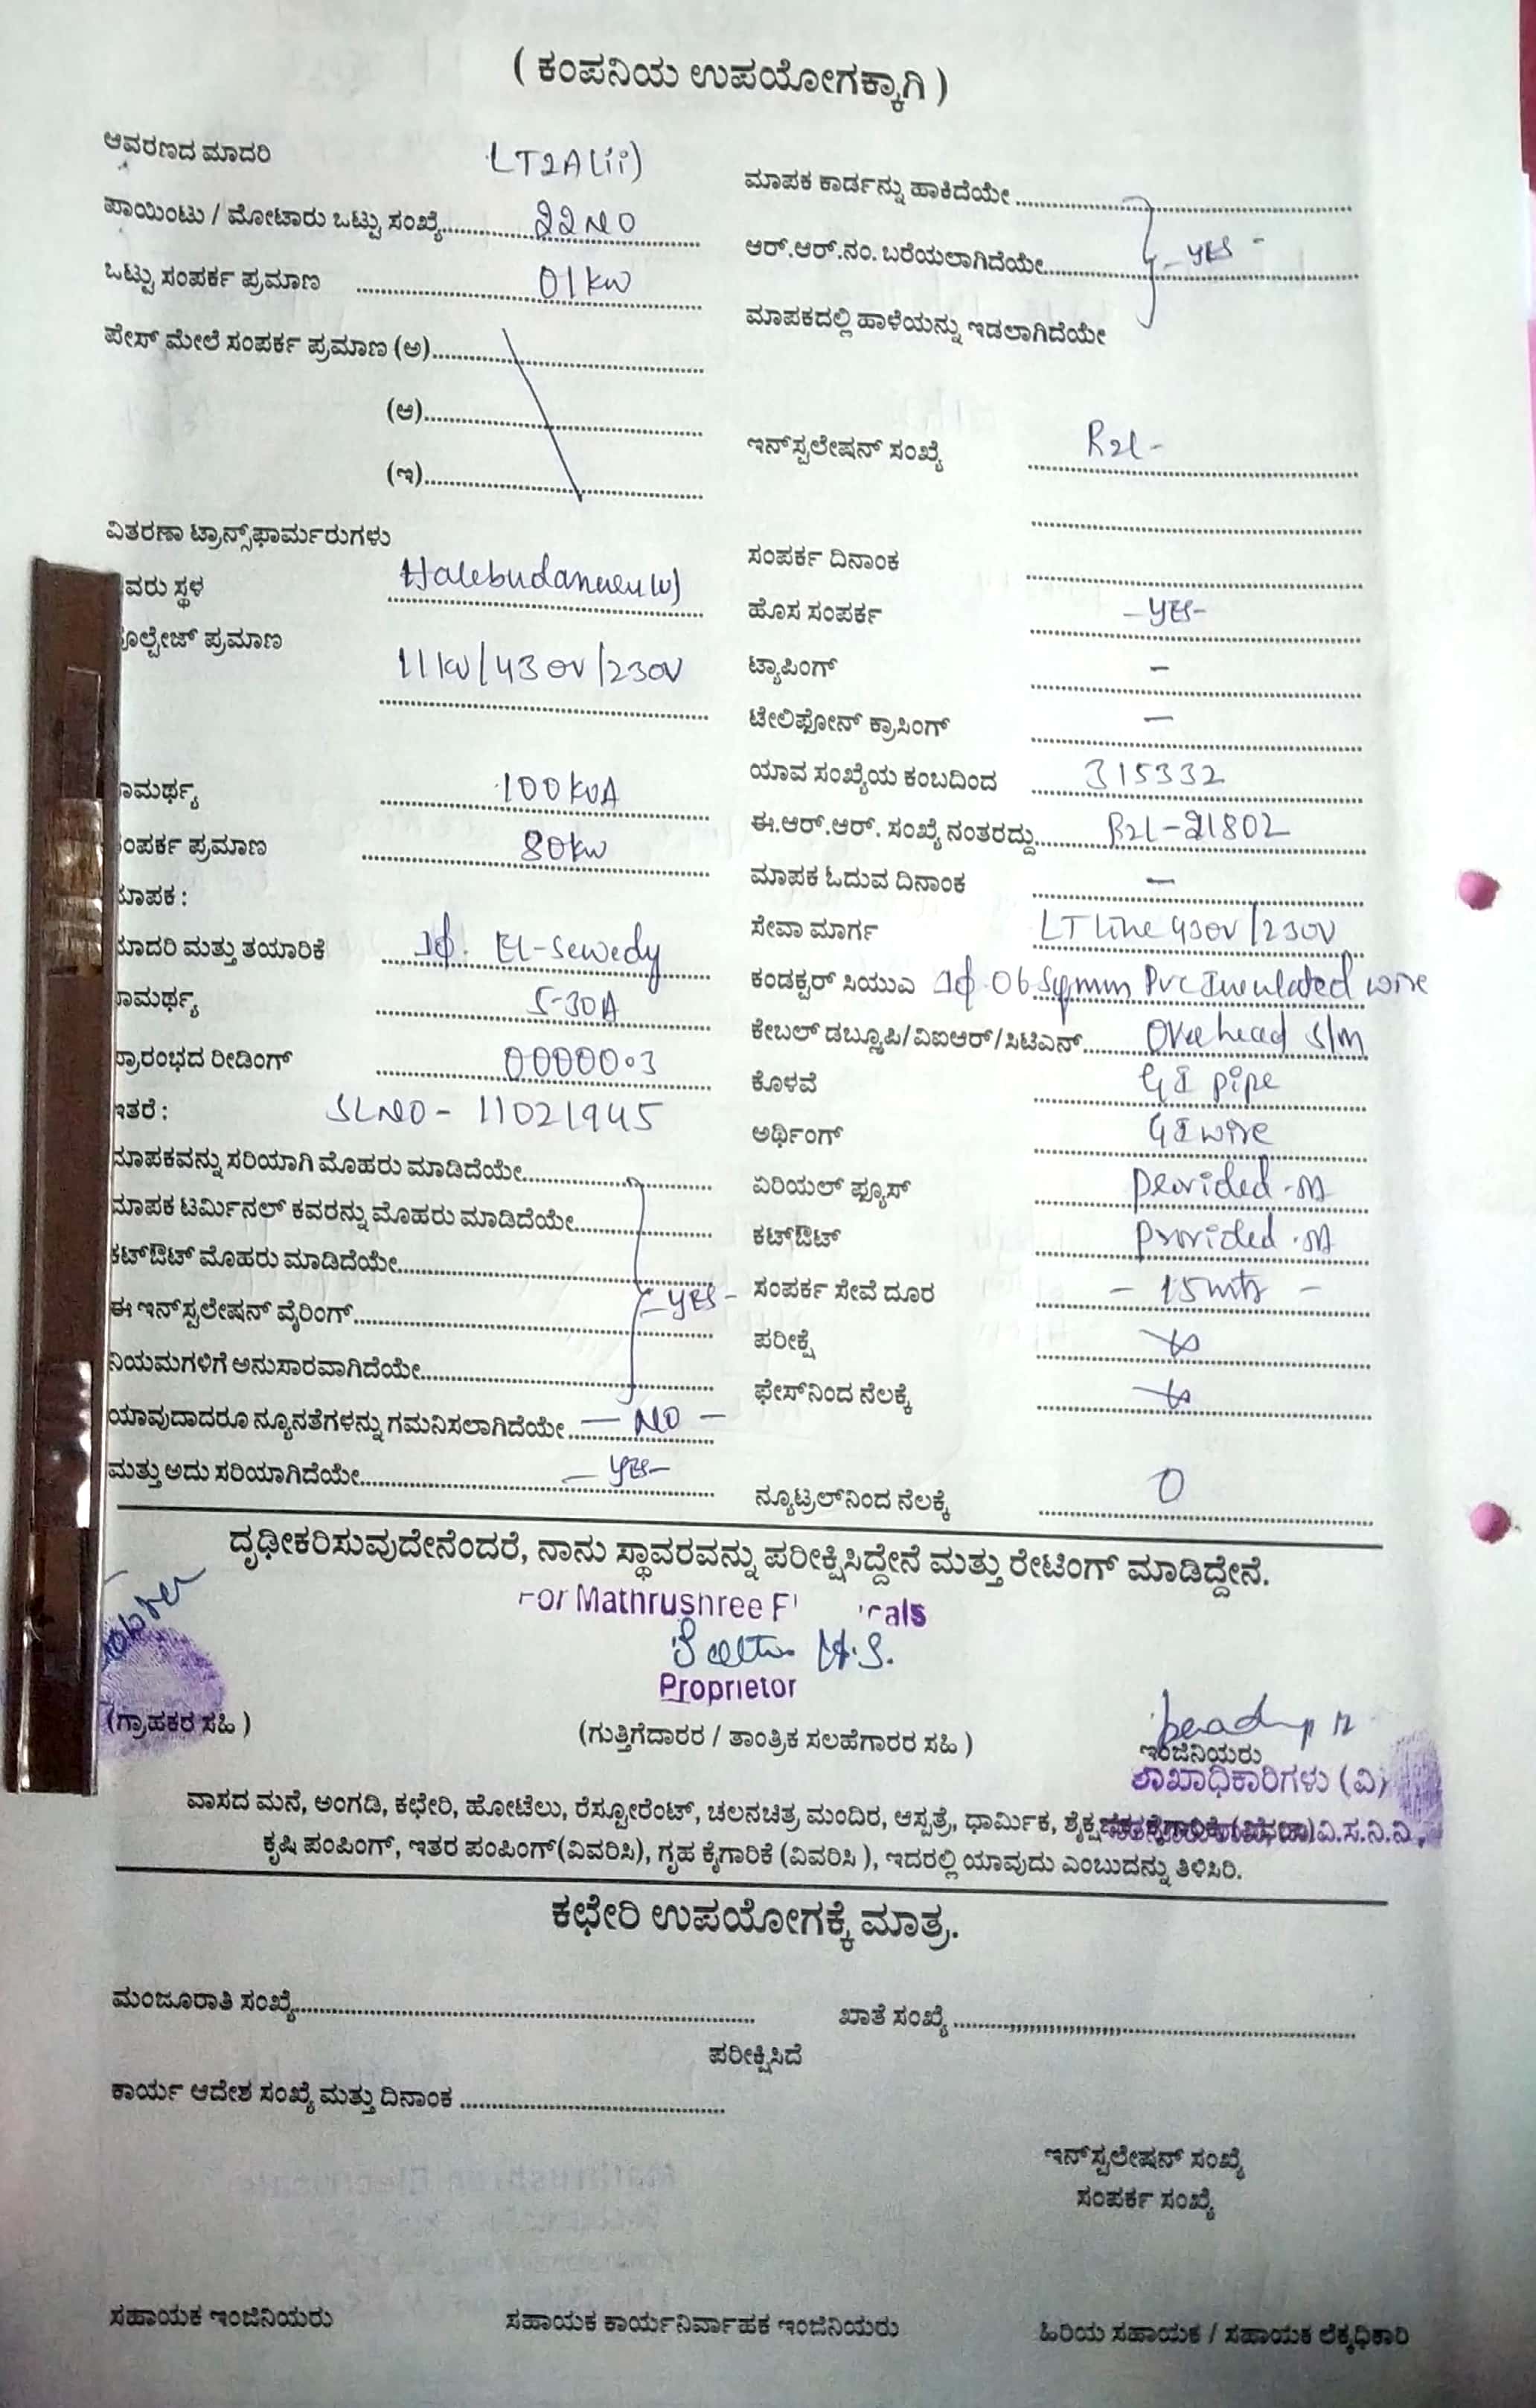 ( ಕಂಪನಿಯ ಉಪಯೋಗಕ್ಕಾಗಿ )
ಆವರಣದ ಮಾದರಿ LT2A(ii)
ಪಾಯಿಂಟು / ಮೋಟಾರು ಒಟ್ಟು ಸಂಖ್ಯೆ 22 NO
ಒಟ್ಟು ಸಂಪರ್ಕ ಪ್ರಮಾಣ 01 kw
ಪೇಸ್ ಮೇಲೆ ಸಂಪರ್ಕ ಪ್ರಮಾಣ (ಅ)
(ಆ)
(ಇ)
ವಿತರಣಾ ಟ್ರಾನ್ಸ್‌ಫಾರ್ಮರುಗಳು
ವರು ಸ್ಥಳ
ಲ್ಟೇಜ್ ಪ್ರಮಾಣ
11KV/430V/230V
ಾಮರ್ಥ್ಯ 100 KVA
ಂಪರ್ಕ ಪ್ರಮಾಣ 80kw
ಮಾಪಕ :
ಮಾದರಿ ಮತ್ತು ತಯಾರಿಕೆ 1ɸ. El-Sewedy
ಾಮರ್ಥ್ಯ 5-30A
ಪ್ರಾರಂಭದ ರೀಡಿಂಗ್ 000000.3
ಇತರೆ : SLNO - 11021945
ಮಾಪಕವನ್ನು ಸರಿಯಾಗಿ ಮೊಹರು ಮಾಡಿದೆಯೇ
ಮಾಪಕ ಟರ್ಮಿನಲ್ ಕವರನ್ನು ಮೊಹರು ಮಾಡಿದೆಯೇ
ಕಟ್‌ಔಟ್ ಮೊಹರು ಮಾಡಿದೆಯೇ
ಈ ಇನ್‌ಸ್ಟಲೇಷನ್ ವೈರಿಂಗ್ - YES -
ನಿಯಮಗಳಿಗೆ ಅನುಸಾರವಾಗಿದೆಯೇ
ಯಾವುದಾದರೂ ನ್ಯೂನತೆಗಳನ್ನು ಗಮನಿಸಲಾಗಿದೆಯೇ - NO -
ಮತ್ತು ಅದು ಸರಿಯಾಗಿದೆಯೇ - YES -
ಮಾಪಕ ಕಾರ್ಡನ್ನು ಹಾಕಿದೆಯೇ
ಆರ್.ಆರ್.ನಂ. ಬರೆಯಲಾಗಿದೆಯೇ - YES -
ಮಾಪಕದಲ್ಲಿ ಹಾಳೆಯನ್ನು ಇಡಲಾಗಿದೆಯೇ
ಇನ್‌ಸ್ಟಲೇಷನ್ ಸಂಖ್ಯೆ R2L -
ಸಂಪರ್ಕ ದಿನಾಂಕ
ಹೊಸ ಸಂಪರ್ಕ - YES -
ಟ್ಯಾಪಿಂಗ್ -
ಟೇಲಿಫೋನ್ ಕ್ರಾಸಿಂಗ್ -
ಯಾವ ಸಂಖ್ಯೆಯ ಕಂಬದಿಂದ 315332
ಈ.ಆರ್.ಆರ್. ಸಂಖ್ಯೆ ನಂತರದ್ದು R2L-21802
ಮಾಪಕ ಓದುವ ದಿನಾಂಕ -
ಸೇವಾ ಮಾರ್ಗ LT line 430V/230V
ಕಂಡಕ್ಟರ್ ಸಿಯುಎ 1ɸ 06 Sqmm PVC Insulated wire
ಕೇಬಲ್ ಡಬ್ಲ್ಯೂಪಿ/ವಿಐಆರ್/ಸಿಟಿಎನ್ Over head S/M
ಕೊಳವೆ GI pipe
ಅರ್ಥಿಂಗ್ GI wire
ಏರಿಯಲ್ ಫ್ಯೂಸ್ provided
ಕಟ್‌ಔಟ್ provided
ಸಂಪರ್ಕ ಸೇವೆ ದೂರ - 15 mts -
ಪರೀಕ್ಷೆ
ಫೇಸ್‌ನಿಂದ ನೆಲಕ್ಕೆ
ನ್ಯೂಟ್ರಲ್‌ನಿಂದ ನೆಲಕ್ಕೆ 0
ದೃಢೀಕರಿಸುವುದೇನೆಂದರೆ, ನಾನು ಸ್ಥಾವರವನ್ನು ಪರೀಕ್ಷಿಸಿದ್ದೇನೆ ಮತ್ತು ರೇಟಿಂಗ್ ಮಾಡಿದ್ದೇನೆ.
For Mathrushree
Proprietor
(ಗ್ರಾಹಕರ ಸಹಿ )
(ಗುತ್ತಿಗೆದಾರರ / ತಾಂತ್ರಿಕ ಸಲಹೆಗಾರರ ಸಹಿ )
ಇಂಜಿನಿಯರು
ಶಾಖಾಧಿಕಾರಿಗಳು (ವಿ)
ವಾಸದ ಮನೆ, ಅಂಗಡಿ, ಕಛೇರಿ, ಹೋಟೆಲು, ರೆಸ್ಟೋರೆಂಟ್, ಚಲನಚಿತ್ರ ಮಂದಿರ, ಆಸ್ಪತ್ರೆ, ಧಾರ್ಮಿಕ,
ಕೃಷಿ ಪಂಪಿಂಗ್, ಇತರ ಪಂಪಿಂಗ್(ವಿವರಿಸಿ), ಗೃಹ ಕೈಗಾರಿಕೆ (ವಿವರಿಸಿ ), ಇದರಲ್ಲಿ ಯಾವುದು ಎಂಬುದನ್ನು ತಿಳಿಸಿರಿ.
ಕಛೇರಿ ಉಪಯೋಗಕ್ಕೆ ಮಾತ್ರ.
ಮಂಜೂರಾತಿ ಸಂಖ್ಯೆ
ಖಾತೆ ಸಂಖ್ಯೆ
ಪರೀಕ್ಷಿಸಿದೆ
ಕಾರ್ಯ ಆದೇಶ ಸಂಖ್ಯೆ ಮತ್ತು ದಿನಾಂಕ
ಇನ್‌ಸ್ಟಲೇಷನ್ ಸಂಖ್ಯೆ
ಸಂಪರ್ಕ ಸಂಖ್ಯೆ
ಸಹಾಯಕ ಇಂಜಿನಿಯರು
ಸಹಾಯಕ ಕಾರ್ಯನಿರ್ವಾಹಕ ಇಂಜಿನಿಯರು
ಹಿರಿಯ ಸಹಾಯಕ / ಸಹಾಯಕ ಲೆಕ್ಕಧಿಕಾರಿ